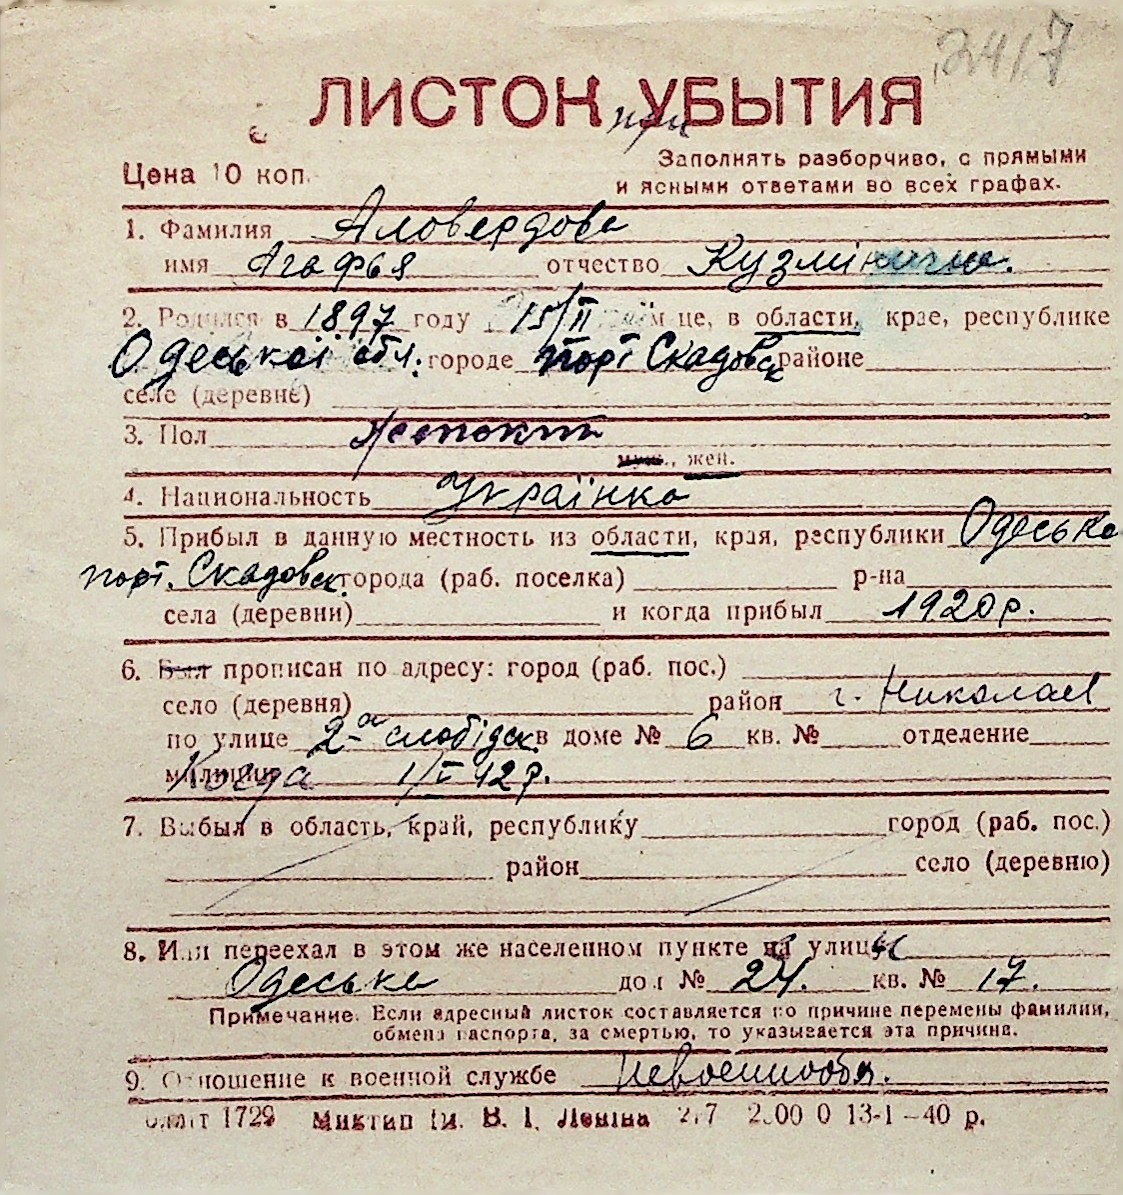 2417
ЛИСТОК УБЫТИЯ
при
Цена 10 коп.
Заполнять разборчиво, с прямыми
и ясными ответами во всех графах.
1. Фамилия Аловердова
имя Агафья отчество Кузмінична.
2. Родился в 1897 году 15/II м-це, в области, крае, республике
Одеської обл. городе порт Скадовск районе
селе (деревне)
3. Пол
муж., жен.
4. Национальность Українка
5. Прибыл в данную местность из области, края, республики Одеська
порт. Скадовск. города (раб. поселка) р-на
села (деревни) и когда прибыл 1920 р.
6. Был прописан по адресу: город (раб. пос.)
село (деревня) район г. Николаев
по улице 2-а слобідск. в доме № 6 кв. № отделение
милиции Когда 1/I 42 р.
7. Выбыл в область, край, республику город (раб. пос.)
район село (деревню)
8. Или переехал в этом же населенном пункте на улицы
Одеська дом № 24. кв. № 17.
Примечание. Если адресный листок составляется по причине перемены фамилии,
обмена паспорта, за смертью, то указывается эта причина.
9. Отношение к военной службе Невоеннообя.
1729 Миктип Ім. В. І. Леніна 13-1-40 р.